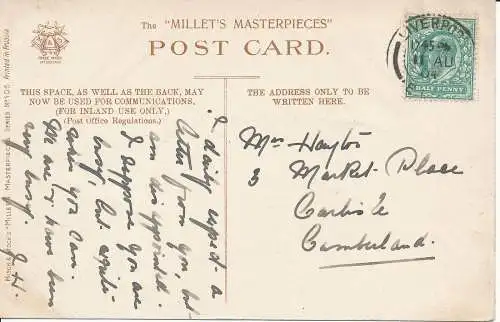 The "MILLET'S MASTERPIECES"
POST CARD.
THIS SPACE, AS WELL AS THE BACK, MAY
NOW BE USED FOR COMMUNICATIONS,
(FOR INLAND USE ONLY,)
(Post Office Regulations.)
THE ADDRESS ONLY TO BE
WRITTEN HERE.
LIVERPOOL
11 AU
04
HALF PENNY
Mrs Hayton
3 Market Place
Carlisle
Cumberland.
I daily expect a
letter from you, but
am disappointed.
I suppose you are
busy, but
when you can.
We are & have been
very busy.
J.H.
"MILLET" MASTERPIECES SERIES Nº 106 Printed in Prussia